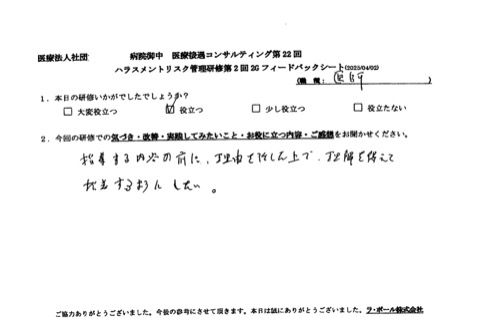 医療法人社団 病院御中 医療接遇コンサルティング第22回
ハラスメントリスク管理研修第2回2Gフィードバックシート(2023/04/02)
(職種: 医師 )
1.本日の研修いかがでしたでしょうか?
□ 大変役立つ ☑ 役立つ □ 少し役立つ □ 役立たない
2.今回の研修での気づき・改善・実践してみたいこと・お役に立つ内容・ご感想をお聞かせください。
指導する内容の前に、理由を話した上で、理解を得て
指導するようにしたい。
ご協力ありがとうございました。今後の参考にさせて頂きます。本日は誠にありがとうございました。ラ・ポール株式会社